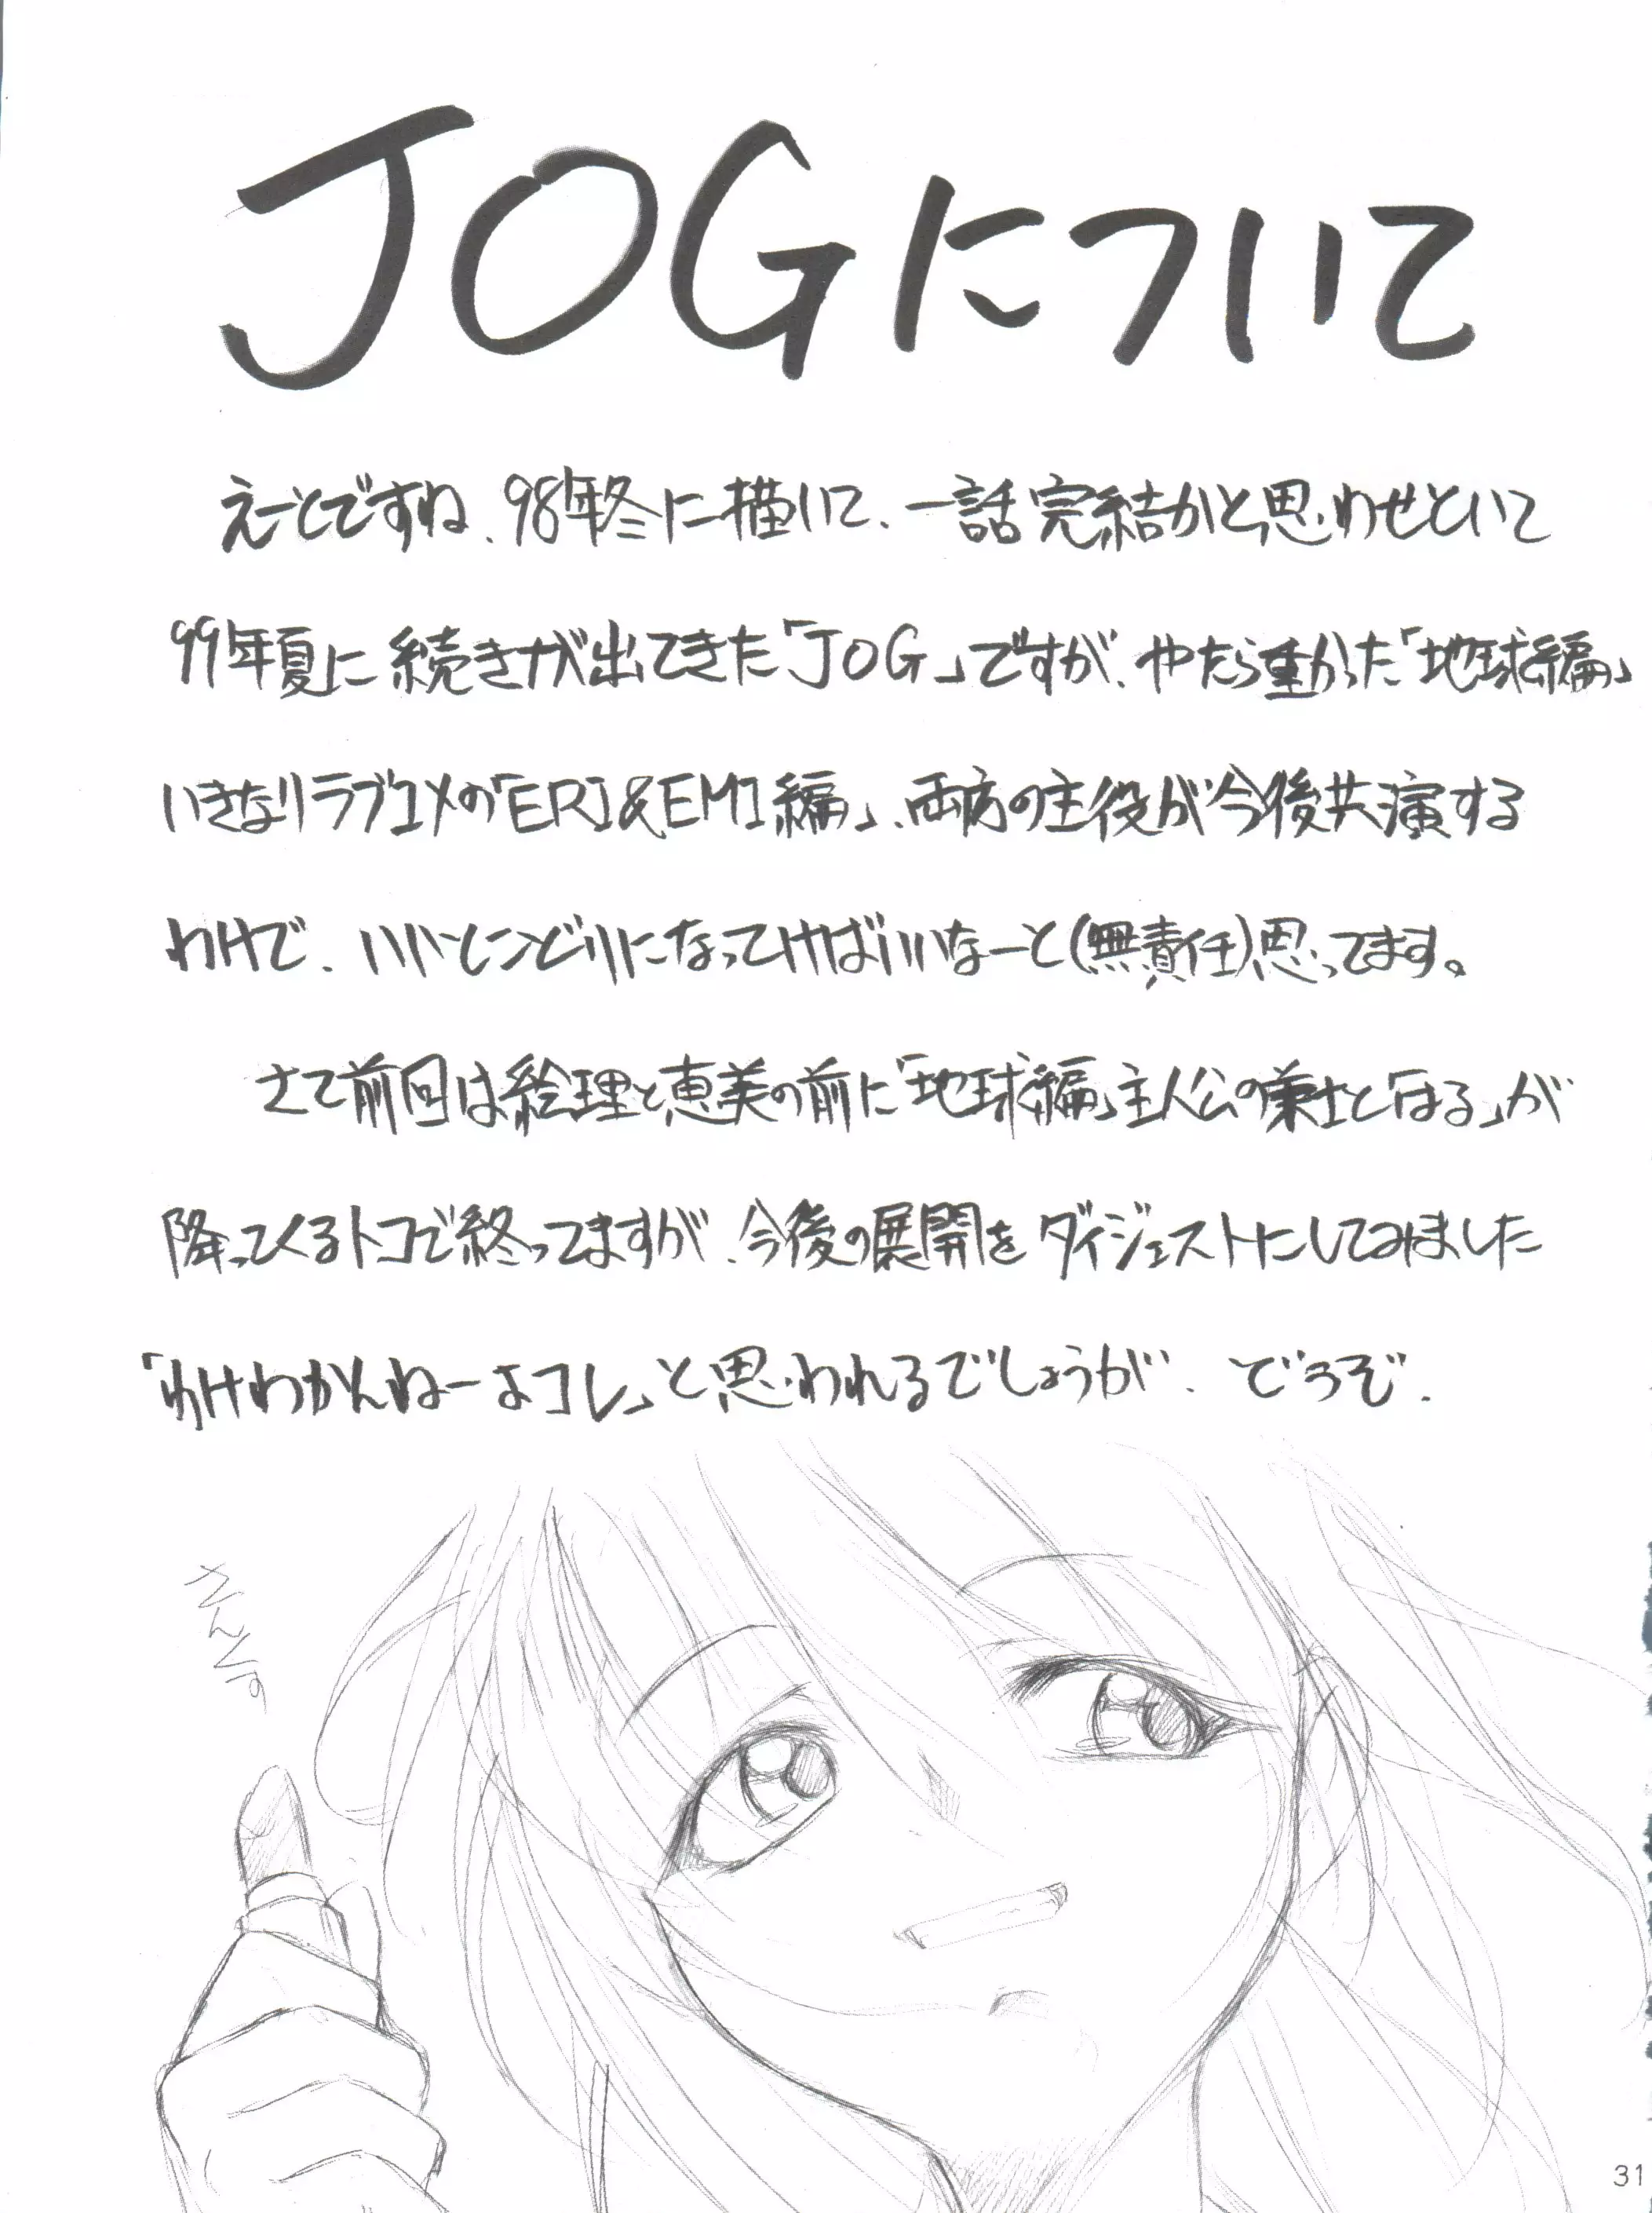 JOGについて
えーとですね、98年冬に描いて、一話完結かと思わせといて
99年夏に続きが出てきた「JOG」ですが、やたら重かった「地球編」
いきなりラブコメの「ERI&EMI編」、両方の主役が今後共演する
わけで、いいとこどりになってけばいいなーと(無責任)思ってます。
さて前回は絵理と恵美の前に「地球編」主人公の兼士と「ほる」が
降ってくるトコで終ってますが、今後の展開をダイジェストにしてみました
「わけわかんねーよコレ」と思われるでしょうが、どうぞ.
31